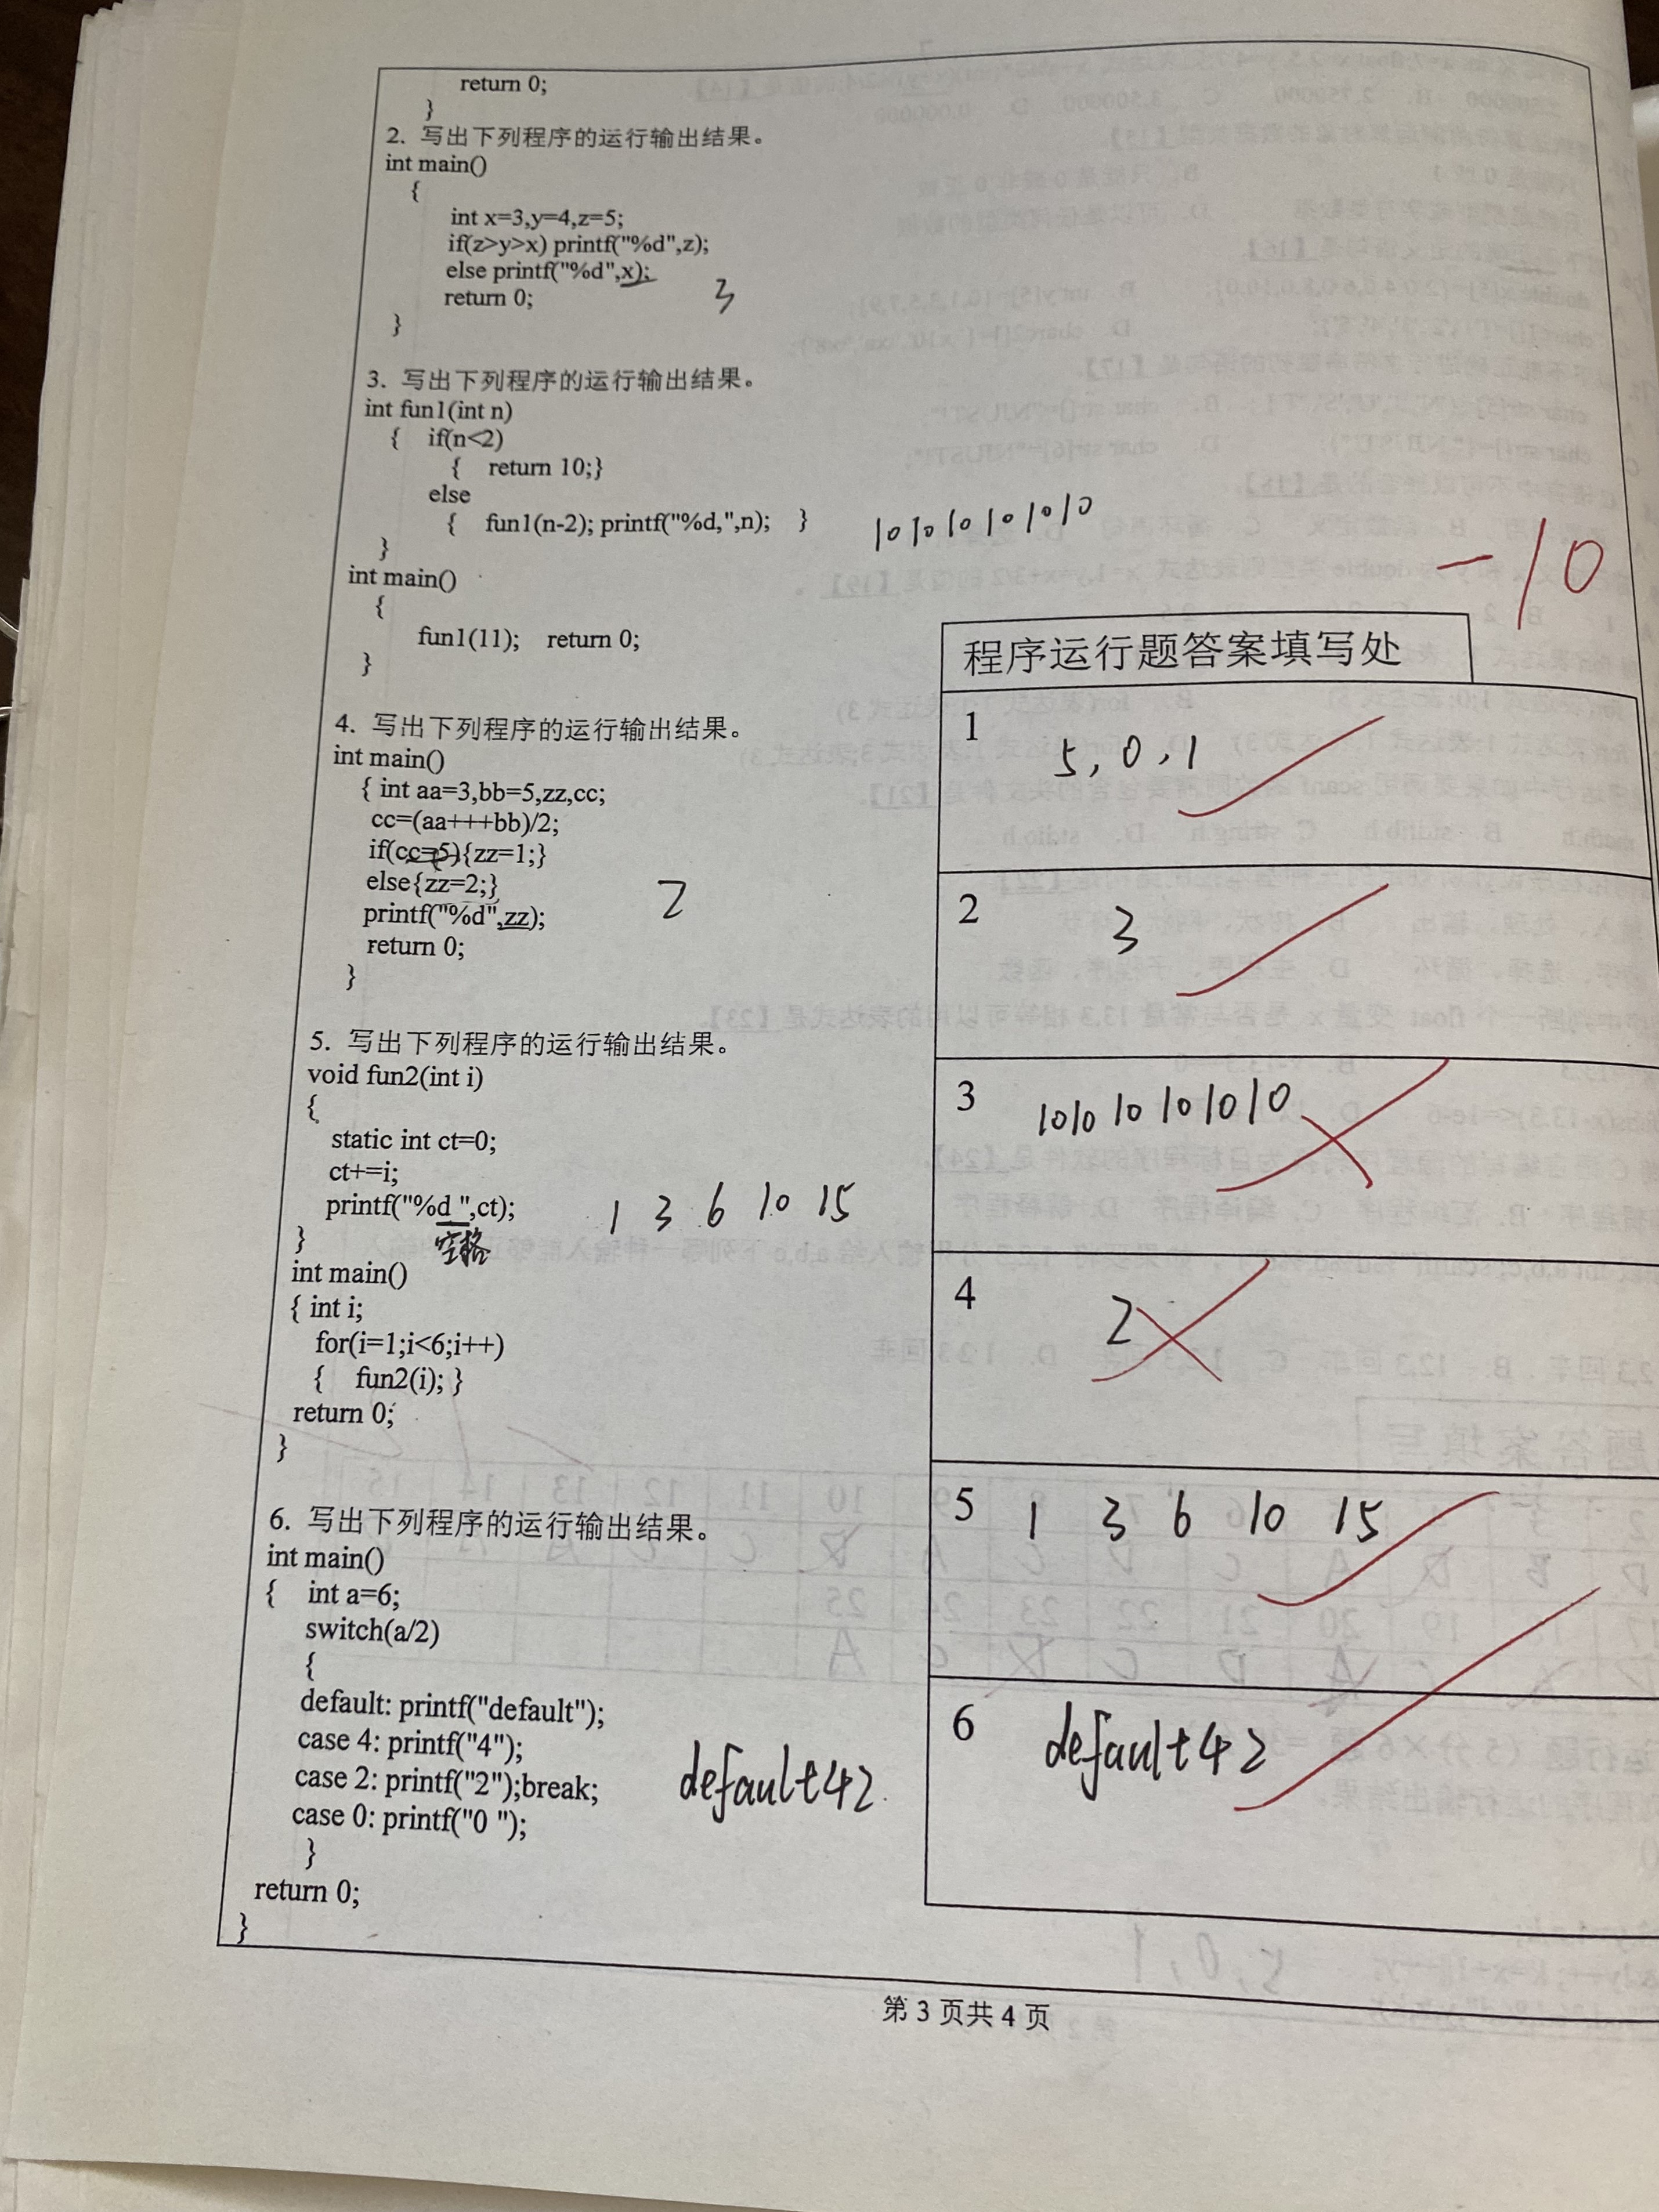 return 0;
}
2. 写出下列程序的运行输出结果。
int main()
{
int x=3,y=4,z=5;
if(z>y>x) printf("%d",z);
else printf("%d",x);
return 0;
3
}
3. 写出下列程序的运行输出结果。
int fun1(int n)
{ if(n<2)
{ return 10;}
else
{ fun1(n-2); printf("%d,",n); }
10 10 10 10 10 10
}
int main()
{
fun1(11); return 0;
}
4. 写出下列程序的运行输出结果。
int main()
{ int aa=3,bb=5,zz,cc;
cc=(aa+++bb)/2;
if(cc=5){zz=1;}
else{zz=2;}
2
printf("%d",zz);
return 0;
}
5. 写出下列程序的运行输出结果。
void fun2(int i)
{
static int ct=0;
ct+=i;
printf("%d ",ct);
1 3 6 10 15
空格
}
int main()
{ int i;
for(i=1;i<6;i++)
{ fun2(i); }
return 0;
}
6. 写出下列程序的运行输出结果。
int main()
{ int a=6;
switch(a/2)
{
default: printf("default");
case 4: printf("4");
case 2: printf("2");break;
default42
case 0: printf("0 ");
}
return 0;
}
-10
程序运行题答案填写处
1 5,0,1
2 3
3 10 10 10 10 10 10
4 2
5 1 3 6 10 15
6 default42
第 3 页共 4 页